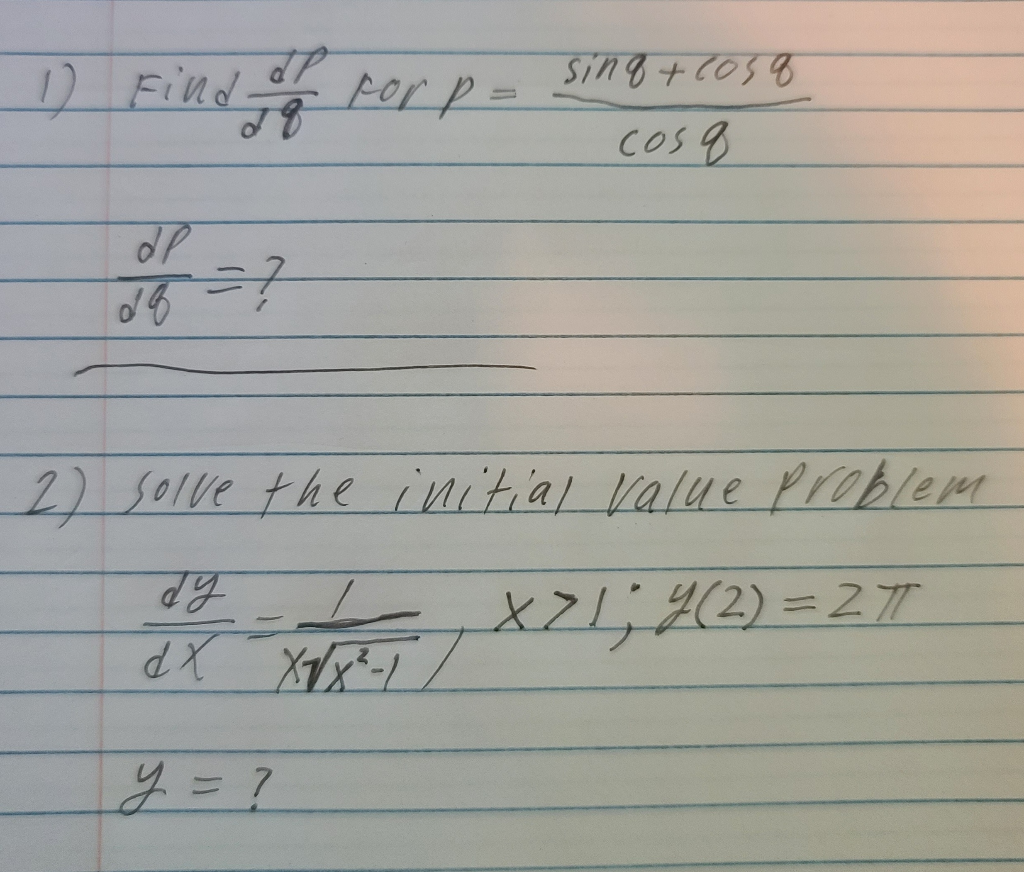 1) Find dp/dq For p = (sinq + cosq)/cosq
dp/dq = ?
2) solve the initial value problem
dy/dx = 1/(x√(x²-1)), x>1; y(2) = 2π
y = ?